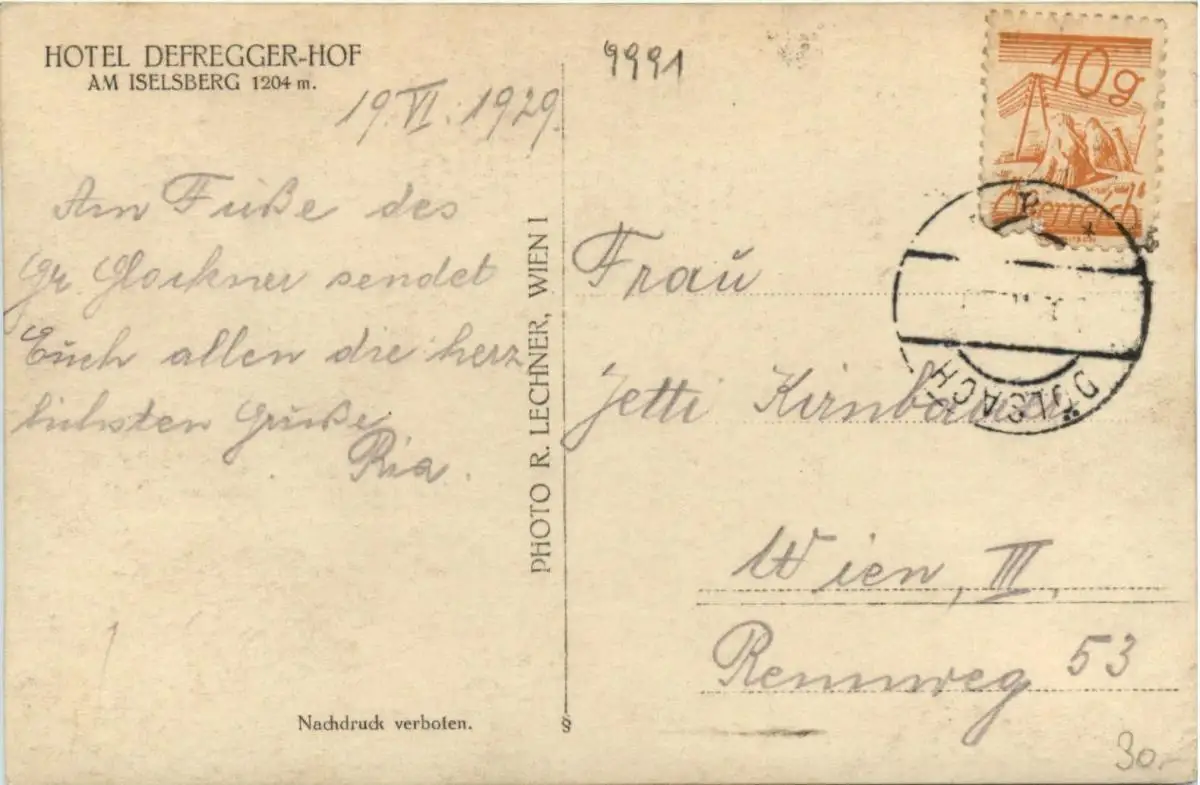 HOTEL DEFREGGER-HOF
AM ISELSBERG 1204 m.
19.VI.1929.
Am Fuße des
Gr. Glockner sendet
Euch allen die herz
lichsten Grüße
Ria.
PHOTO R. LECHNER, WIEN I
Nachdruck verboten.
§
9991
10g
Österreich
DÖLSACH
Frau
Jetti Kirnbauer
Wien, III,
Rennweg 53
30.-